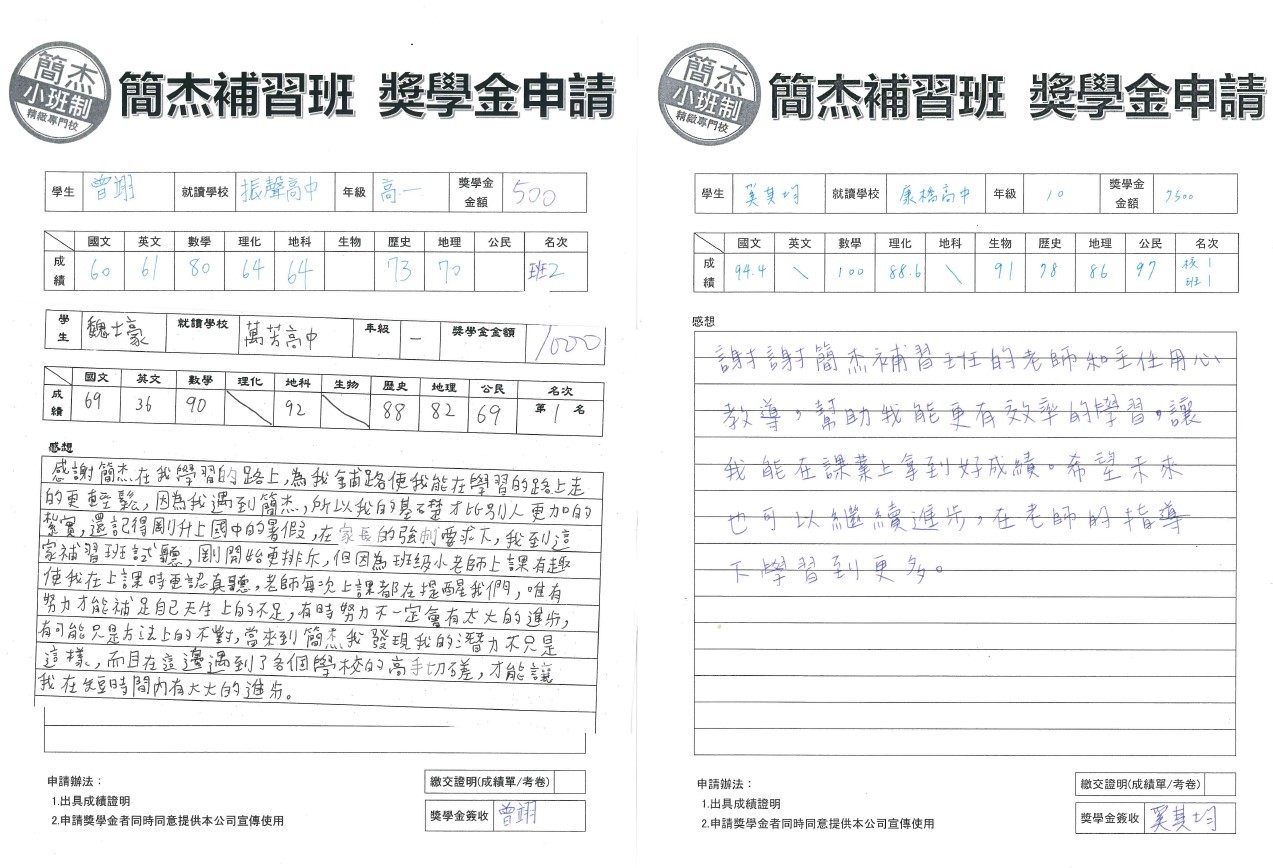 簡杰
小班制
精緻專門校
簡杰補習班 獎學金申請
學生 曾翊 就讀學校 振聲高中 年級 高一 獎學金金額 500
國文 英文 數學 理化 地科 生物 歷史 地理 公民 名次
成績 60 61 80 64 64 73 70 班2
學生 魏士豪 就讀學校 萬芳高中 年級 一 獎學金金額 1000
國文 英文 數學 理化 地科 生物 歷史 地理 公民 名次
成績 69 36 90 92 88 82 69 第1名
感想
感謝簡杰在我學習的路上,為我鋪路使我能在學習的路上走
的更輕鬆,因為我遇到簡杰,所以我的基礎才比別人更加的
紮實,還記得剛升上國中的暑假,在家長的強制要求下,我到這
家補習班試聽,剛開始更排斥,但因為班級小老師上課有趣
使我在上課時更認真聽,老師每次上課都在提醒我們,唯有
努力才能補足自己天生上的不足,有時努力不一定會有太大的進步,
有可能只是方法上的不對,當來到簡杰我發現我的潛力不只是
這樣,而且在這邊遇到了各個學校的高手切磋,才能讓
我在短時間內有大大的進步。
申請辦法：
1.出具成績證明
2.申請獎學金者同時同意提供本公司宣傳使用
繳交證明(成績單/考卷)
獎學金簽收 曾翊
簡杰
小班制
精緻專門校
簡杰補習班 獎學金申請
學生 奚其均 就讀學校 康橋高中 年級 10 獎學金金額 7500
國文 英文 數學 理化 地科 生物 歷史 地理 公民 名次
成績 94.4 \ 100 88.6 \ 91 98 86 97 校1 班1
感想
謝謝簡杰補習班的老師和主任用心
教導，幫助我能更有效率的學習，讓
我能在課業上拿到好成績。希望未來
也可以繼續進步，在老師的指導
下學習到更多。
申請辦法：
1.出具成績證明
2.申請獎學金者同時同意提供本公司宣傳使用
繳交證明(成績單/考卷)
獎學金簽收 奚其均